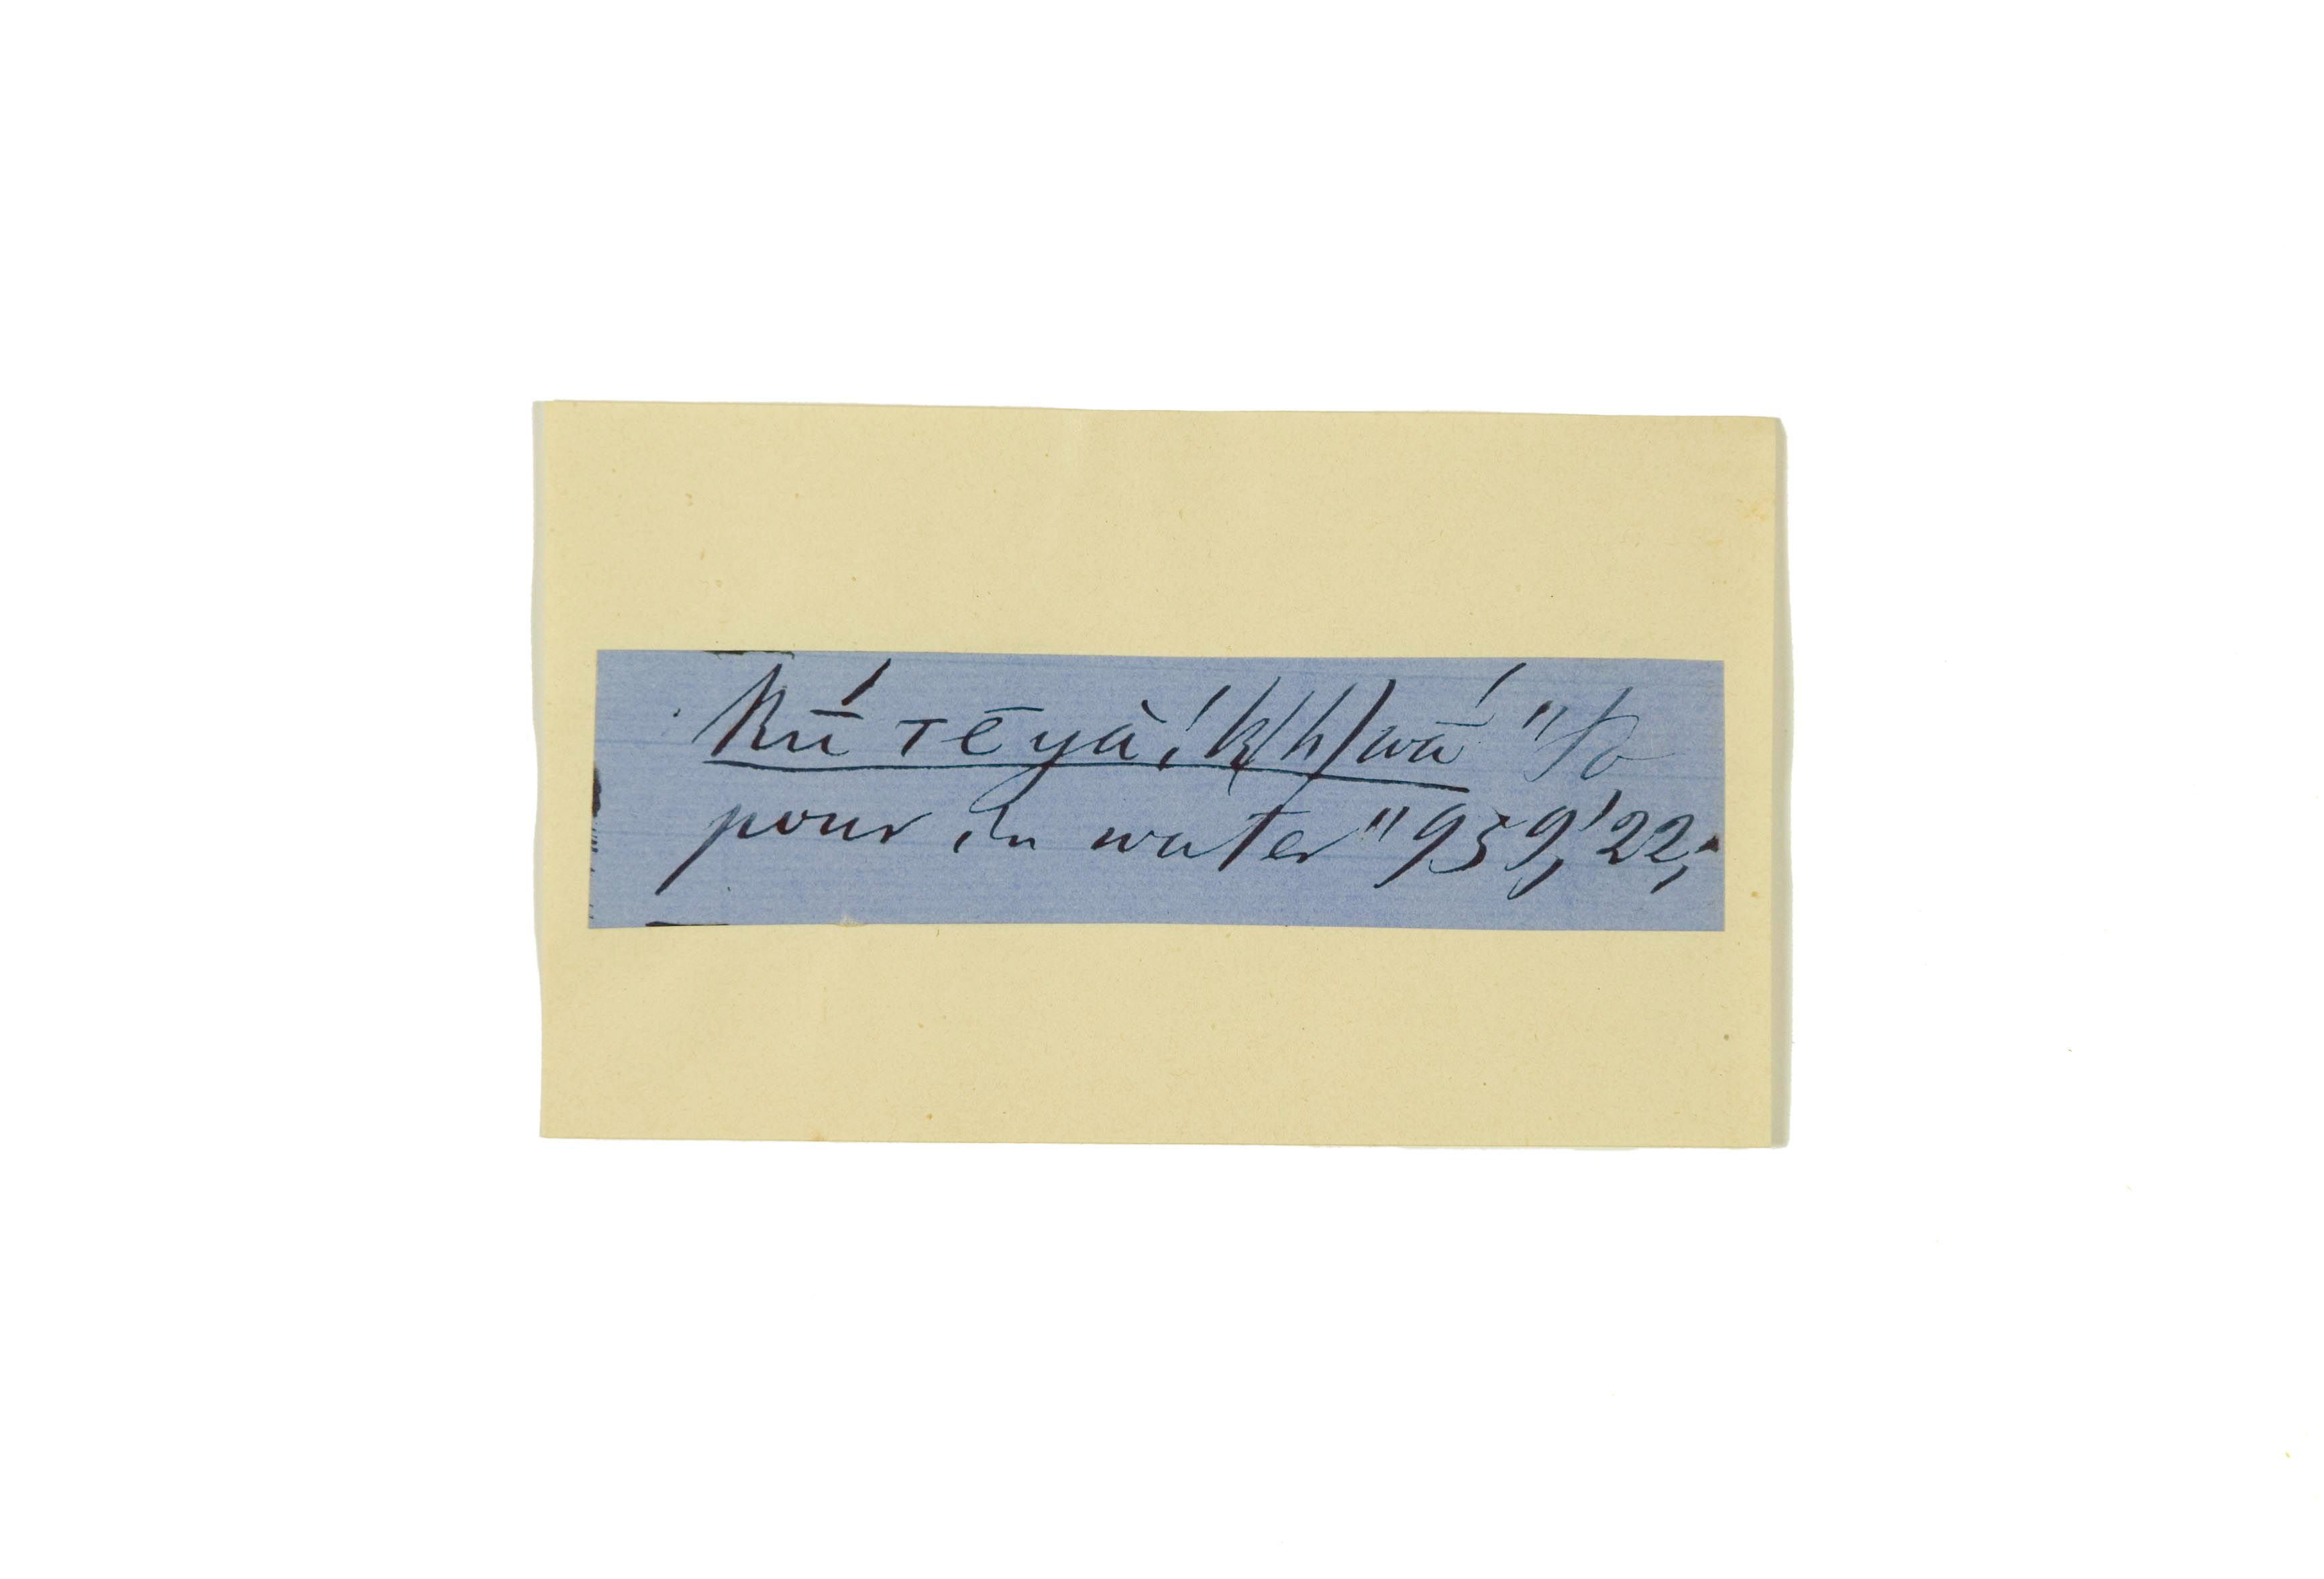 Kū́ TĒyà!k(h)wā́ "To
pour in water" 959,'22;